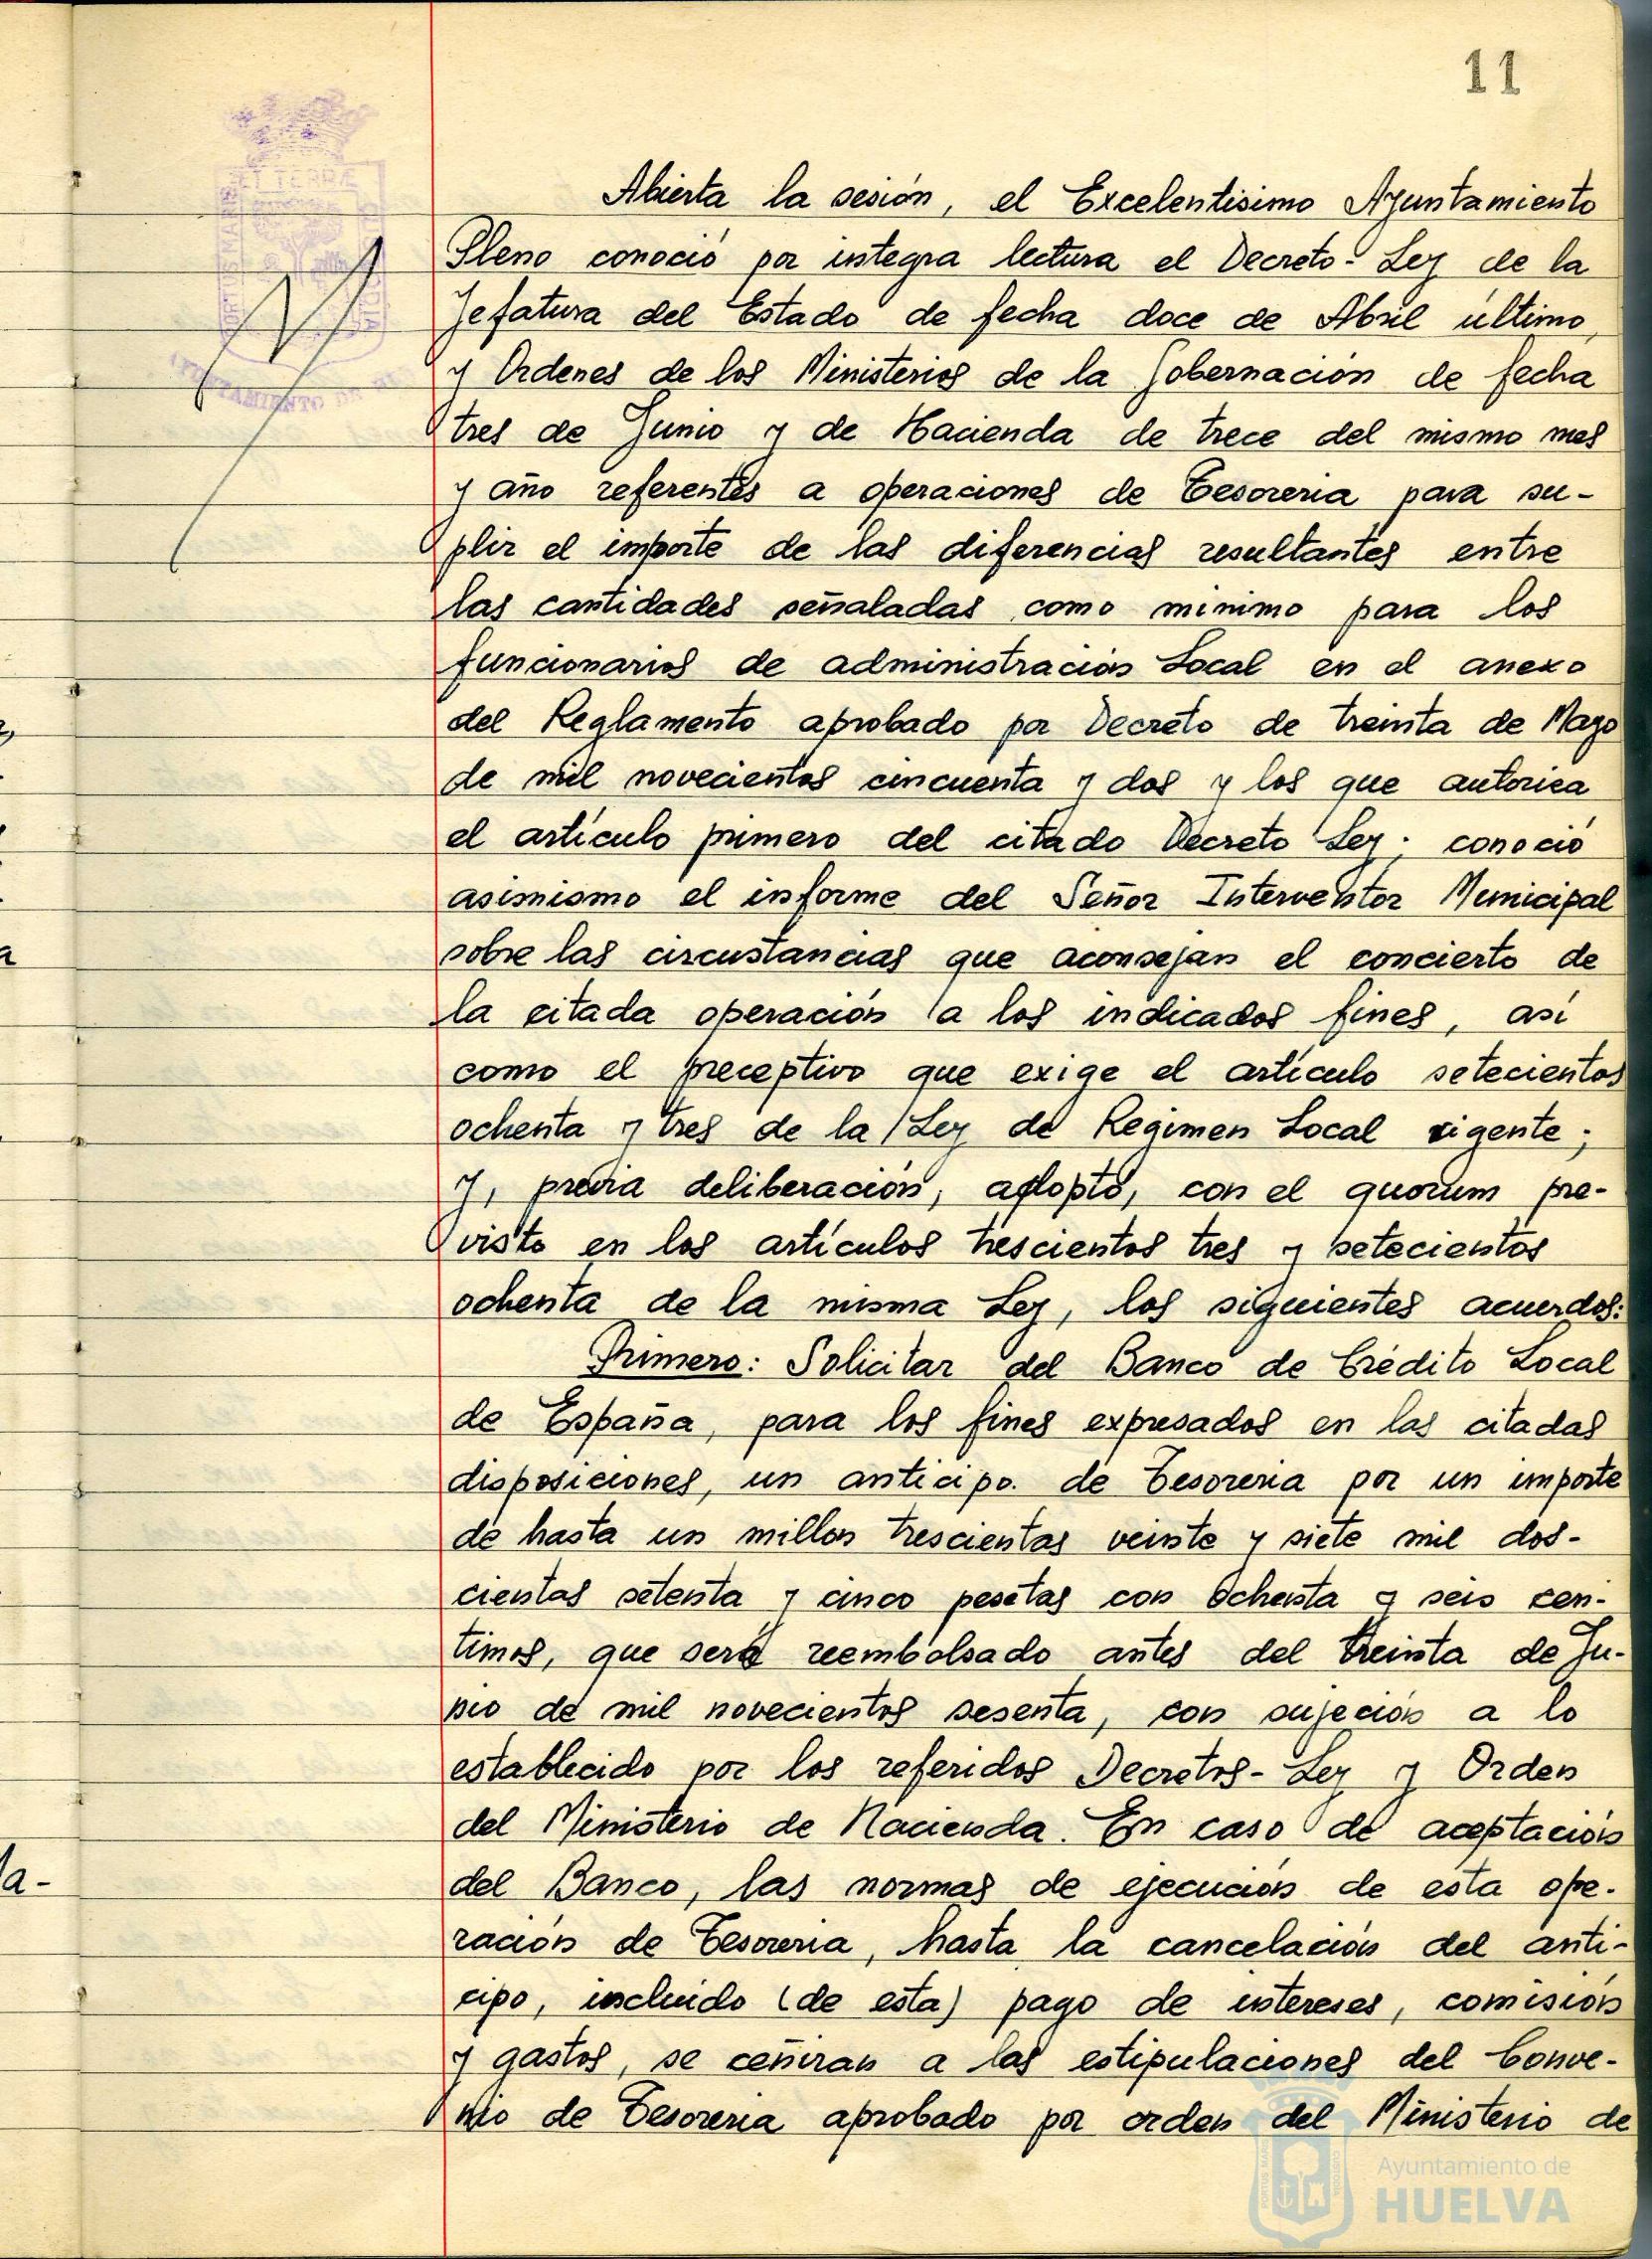 11
ET TERRÆ
PORTUS MARIS
CUSTODIA
AYUNTAMIENTO DE
Abierta la sesión, el Excelentisimo Ayuntamiento
Pleno conoció por integra lectura el Decreto-Ley de la
Jefatura del Estado de fecha doce de Abril último,
y Ordenes de los Ministerios de la Gobernación de fecha
tres de Junio y de Hacienda de trece del mismo mes
y año referentes a operaciones de Tesoreria para su-
plir el importe de las diferencias resultantes entre
las cantidades señaladas como minimo para los
funcionarios de administración Local en el anexo
del Reglamento aprobado por Decreto de treinta de Mayo
de mil novecientos cincuenta y dos y los que autoriza
el artículo primero del citado Decreto Ley; conoció
asimismo el informe del Señor Interventor Municipal
sobre las circustancias que aconsejan el concierto de
la citada operación a los indicados fines, así
como el preceptivo que exige el artículo setecientos
ochenta y tres de la Ley de Regimen Local vigente;
y, previa deliberación, adoptó, con el quorum pre-
visto en los artículos trescientos tres y setecientos
ochenta de la misma Ley, los siguientes acuerdos:
Primero: Solicitar del Banco de Crédito Local
de España, para los fines expresados en las citadas
disposiciones, un anticipo. de Tesoreria por un importe
de hasta un millon trescientas veinte y siete mil dos-
cientas setenta y cinco pesetas con ochenta y seis cen-
timos, que será reembolsado antes del treinta de Ju-
nio de mil novecientos sesenta, con sujeción a lo
establecido por los referidos Decretos-Ley y Orden
del Ministerio de Hacienda. En caso de aceptación
del Banco, las normas de ejecución de esta ope-
ración de Tesoreria, hasta la cancelación del anti-
cipo, incluido (de esta) pago de intereses, comisión
y gastos, se ceñiran a las estipulaciones del Conve-
nio de Tesoreria aprobado por orden del Ministerio de
a
la-
Ayuntamiento de
HUELVA